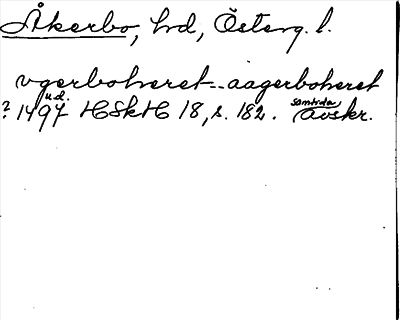 Åkerbo, hd, Österg. l.
vgerboheret - - aagerboheret
? 1497 u.d. HSkH 18, s. 182. samtida avskr.